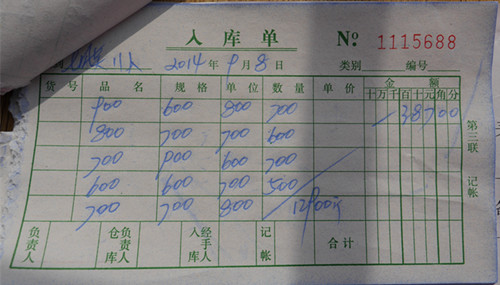 入库单 № 1115688
2014年9月8日 类别 编号
货号 品名 规格 单位 数量 单价 金额
十万千百十元角分
900 600 800 700 38700
800 700 700 600
700 900 600 700
600 600 700 500
700 700 800 12900元
第三联 记帐
负责人 仓库负责人 入库经手人 记帐 合计